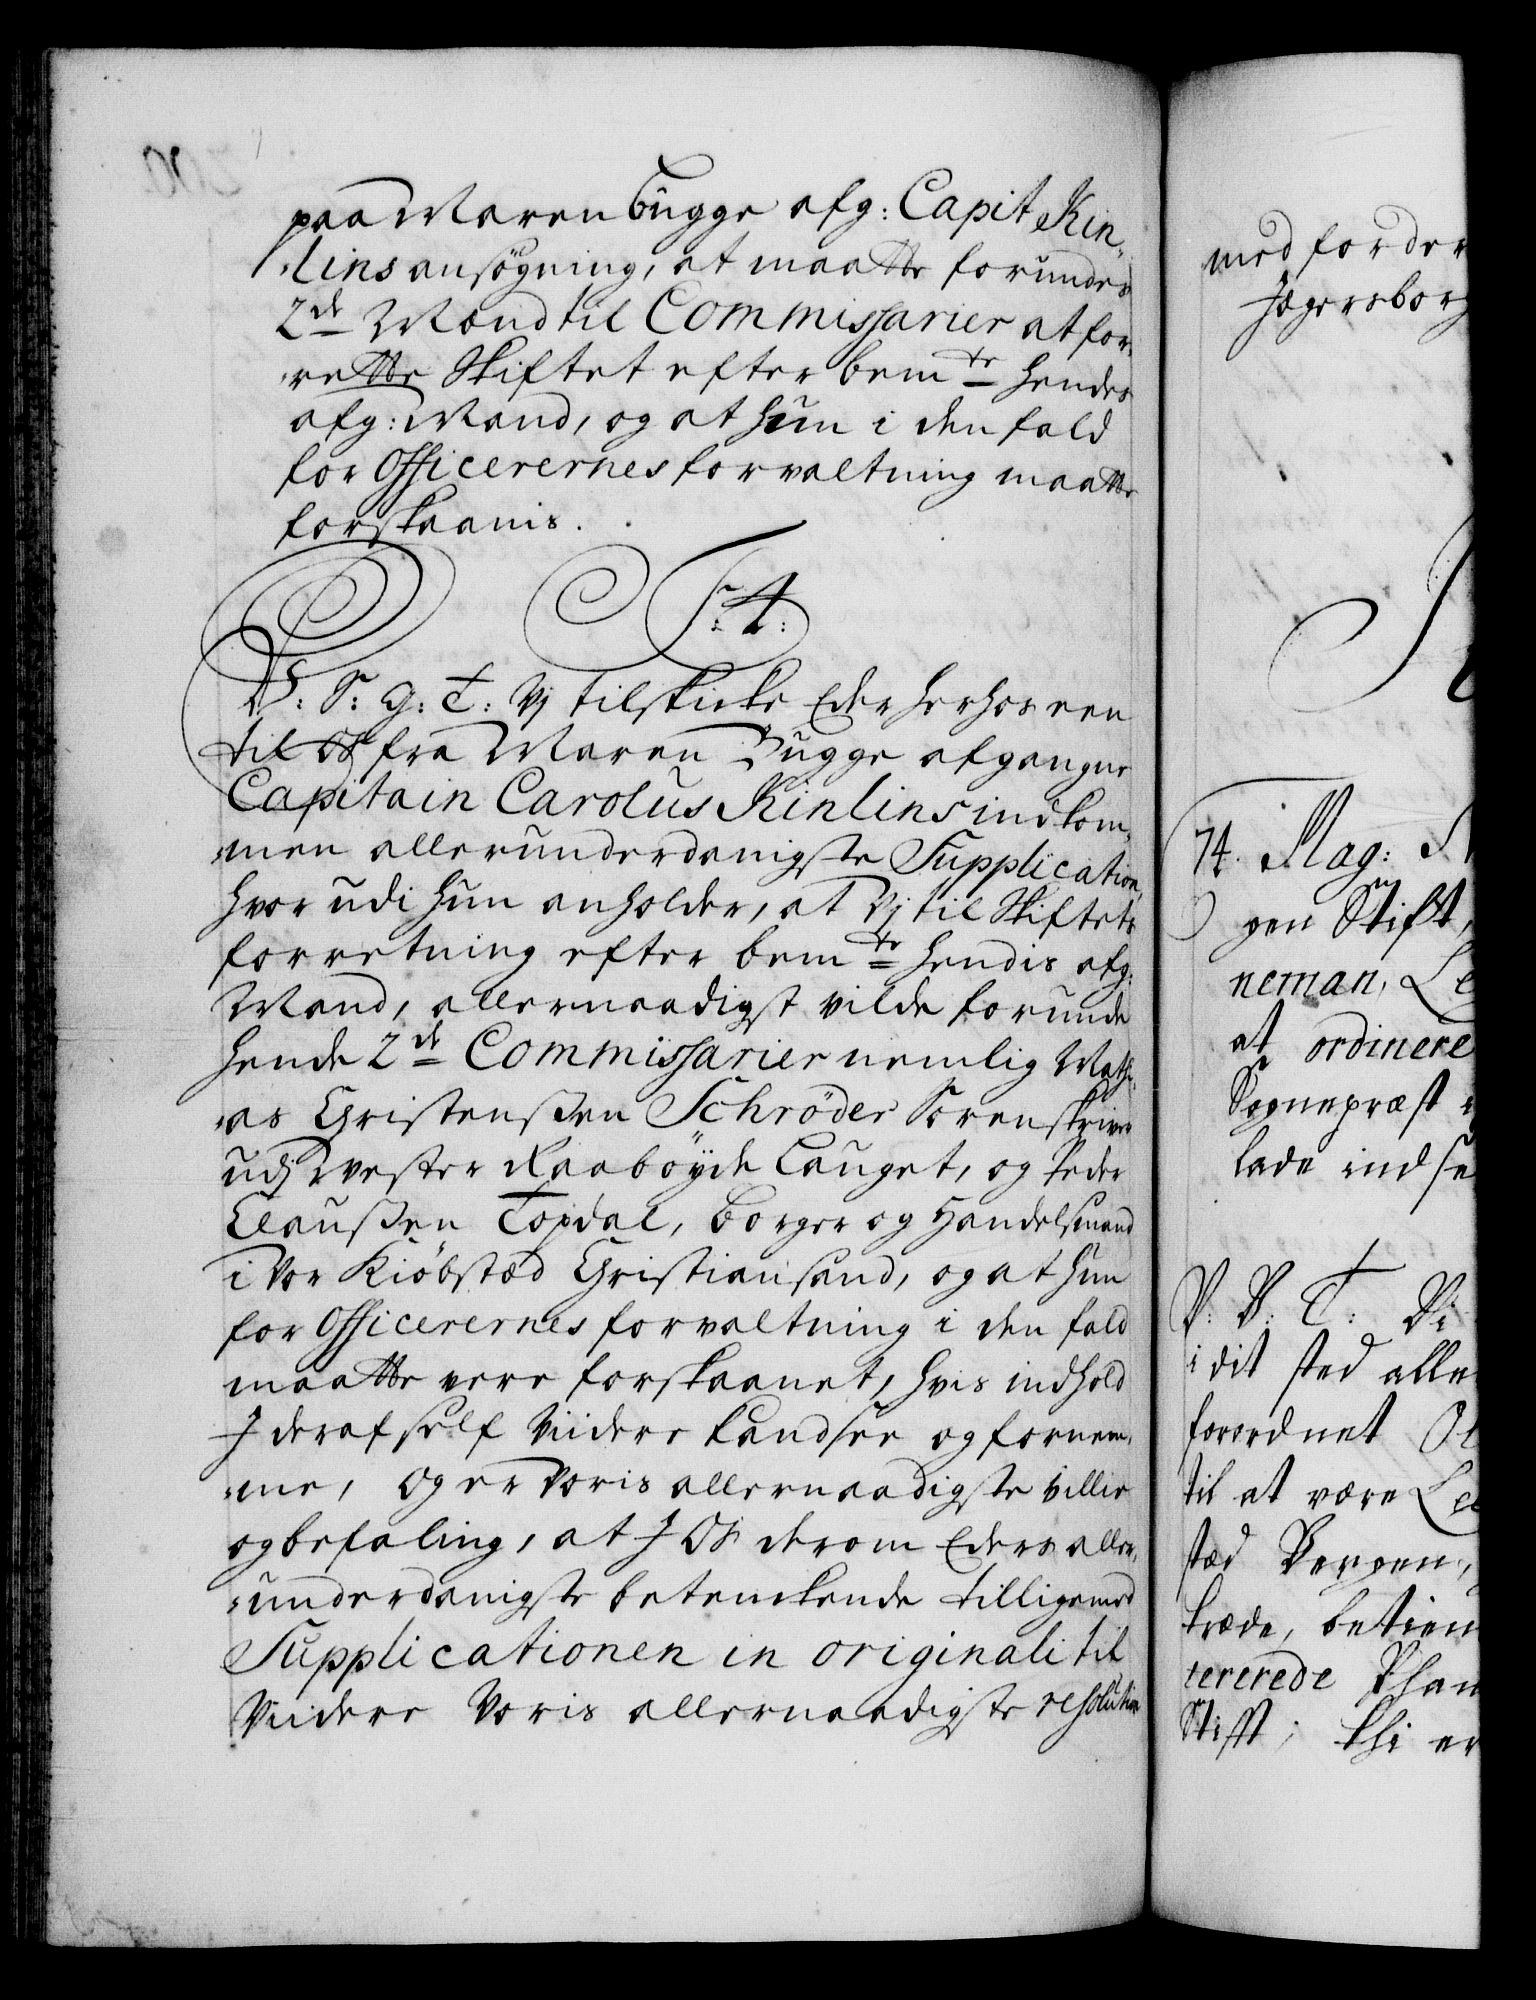 paa Maren Bugge afg: Capit Kin„
„lins ansøgning, at maatte forundes
2de Mænd til Commissarier at for„
„rette Skiftet efter bemte hendes
afg: Mand, og at hun i den fald
for Officerernes forvaltning maatte
forskaanis.
F: 4:
V: S: G: T: Vj tilskicke Eder herhos een
til Os fra Maren Bugge afgangne
Capitain Carolus Kinlins indkom„
„men allerunderdanigste Supplication,
hvorudi hun anholder, at Vj til Skiftets
forretning efter bemte hendis afg:
Mand, allernaadigst vilde forunde
hende 2de Commissarier nemlig Mathi„
„as Christenßen Schrøder Sorenskriver
udj Wester Raabøyde Lauget, og Peder
Claußen Topdal, Borger og Handelsmand
i Vor Kiøbstæd Christiansand, og at hun
for Officerernes forvaltning i den fald
maatte vere forskaanet, hvis indhold
I deraf self Viidere kand see og fornem„
„me, Og er Voris allernaadigste Villie
og befaling, at I Os derom Eders aller„
„underdanigste betenckende tilligemed
Supplicationen in originali til
Viidere Voris allernaadigste resolution
med forder
Jægersborg
74. Mag:
gen Stift,
neman, Le
at ordinere
Sognepræst
lade indse
V: V: T: Vi
i dit sted alle
forordnet
til at være Le
stæd Bergen,
træde, betien
tererede Phan
Stifft; thi er